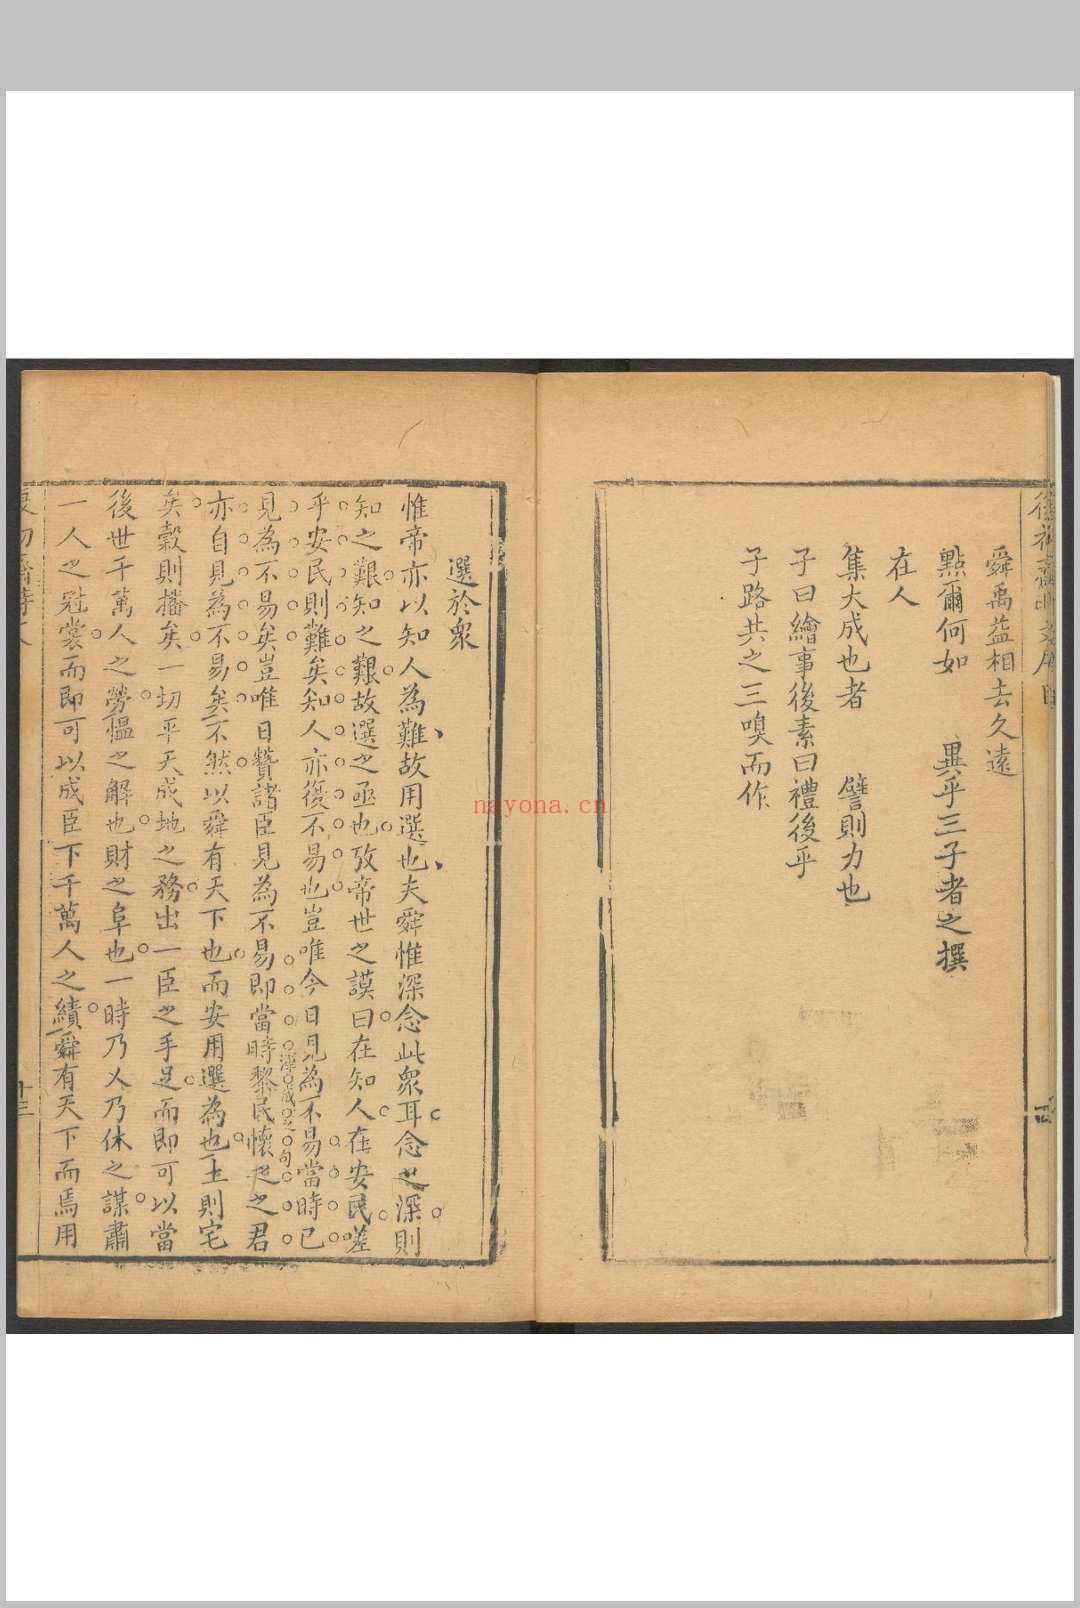 舜禹益相去久遠
點爾何如 異乎三子者之撰
在人
集大成也者 譬則力也
子曰繪事後素曰禮後乎
子路共之三嗅而作
選於眾
惟帝亦以知人為難故用選也夫舜惟深念此眾耳念之深則
知之艱知之艱故選之亟也攷帝世之謨曰在知人在安民嗟
乎安民則難矣知人亦復不易也豈唯今日見為不易當時已
見為不易矣豈唯日贊諸臣見為不易即當時黎民懷之之君
亦自見為不易矣不然以舜有天下也而安用選為也土則宅
矣穀則播矣一切平天成地之務出一臣之手足而即可以當
後世千萬人之勞慍之解也財之阜也一時乃乂乃休之謀肅
一人之冠裳而即可以成臣下千萬人之績舜有天下而焉用
十三
nayona.cn